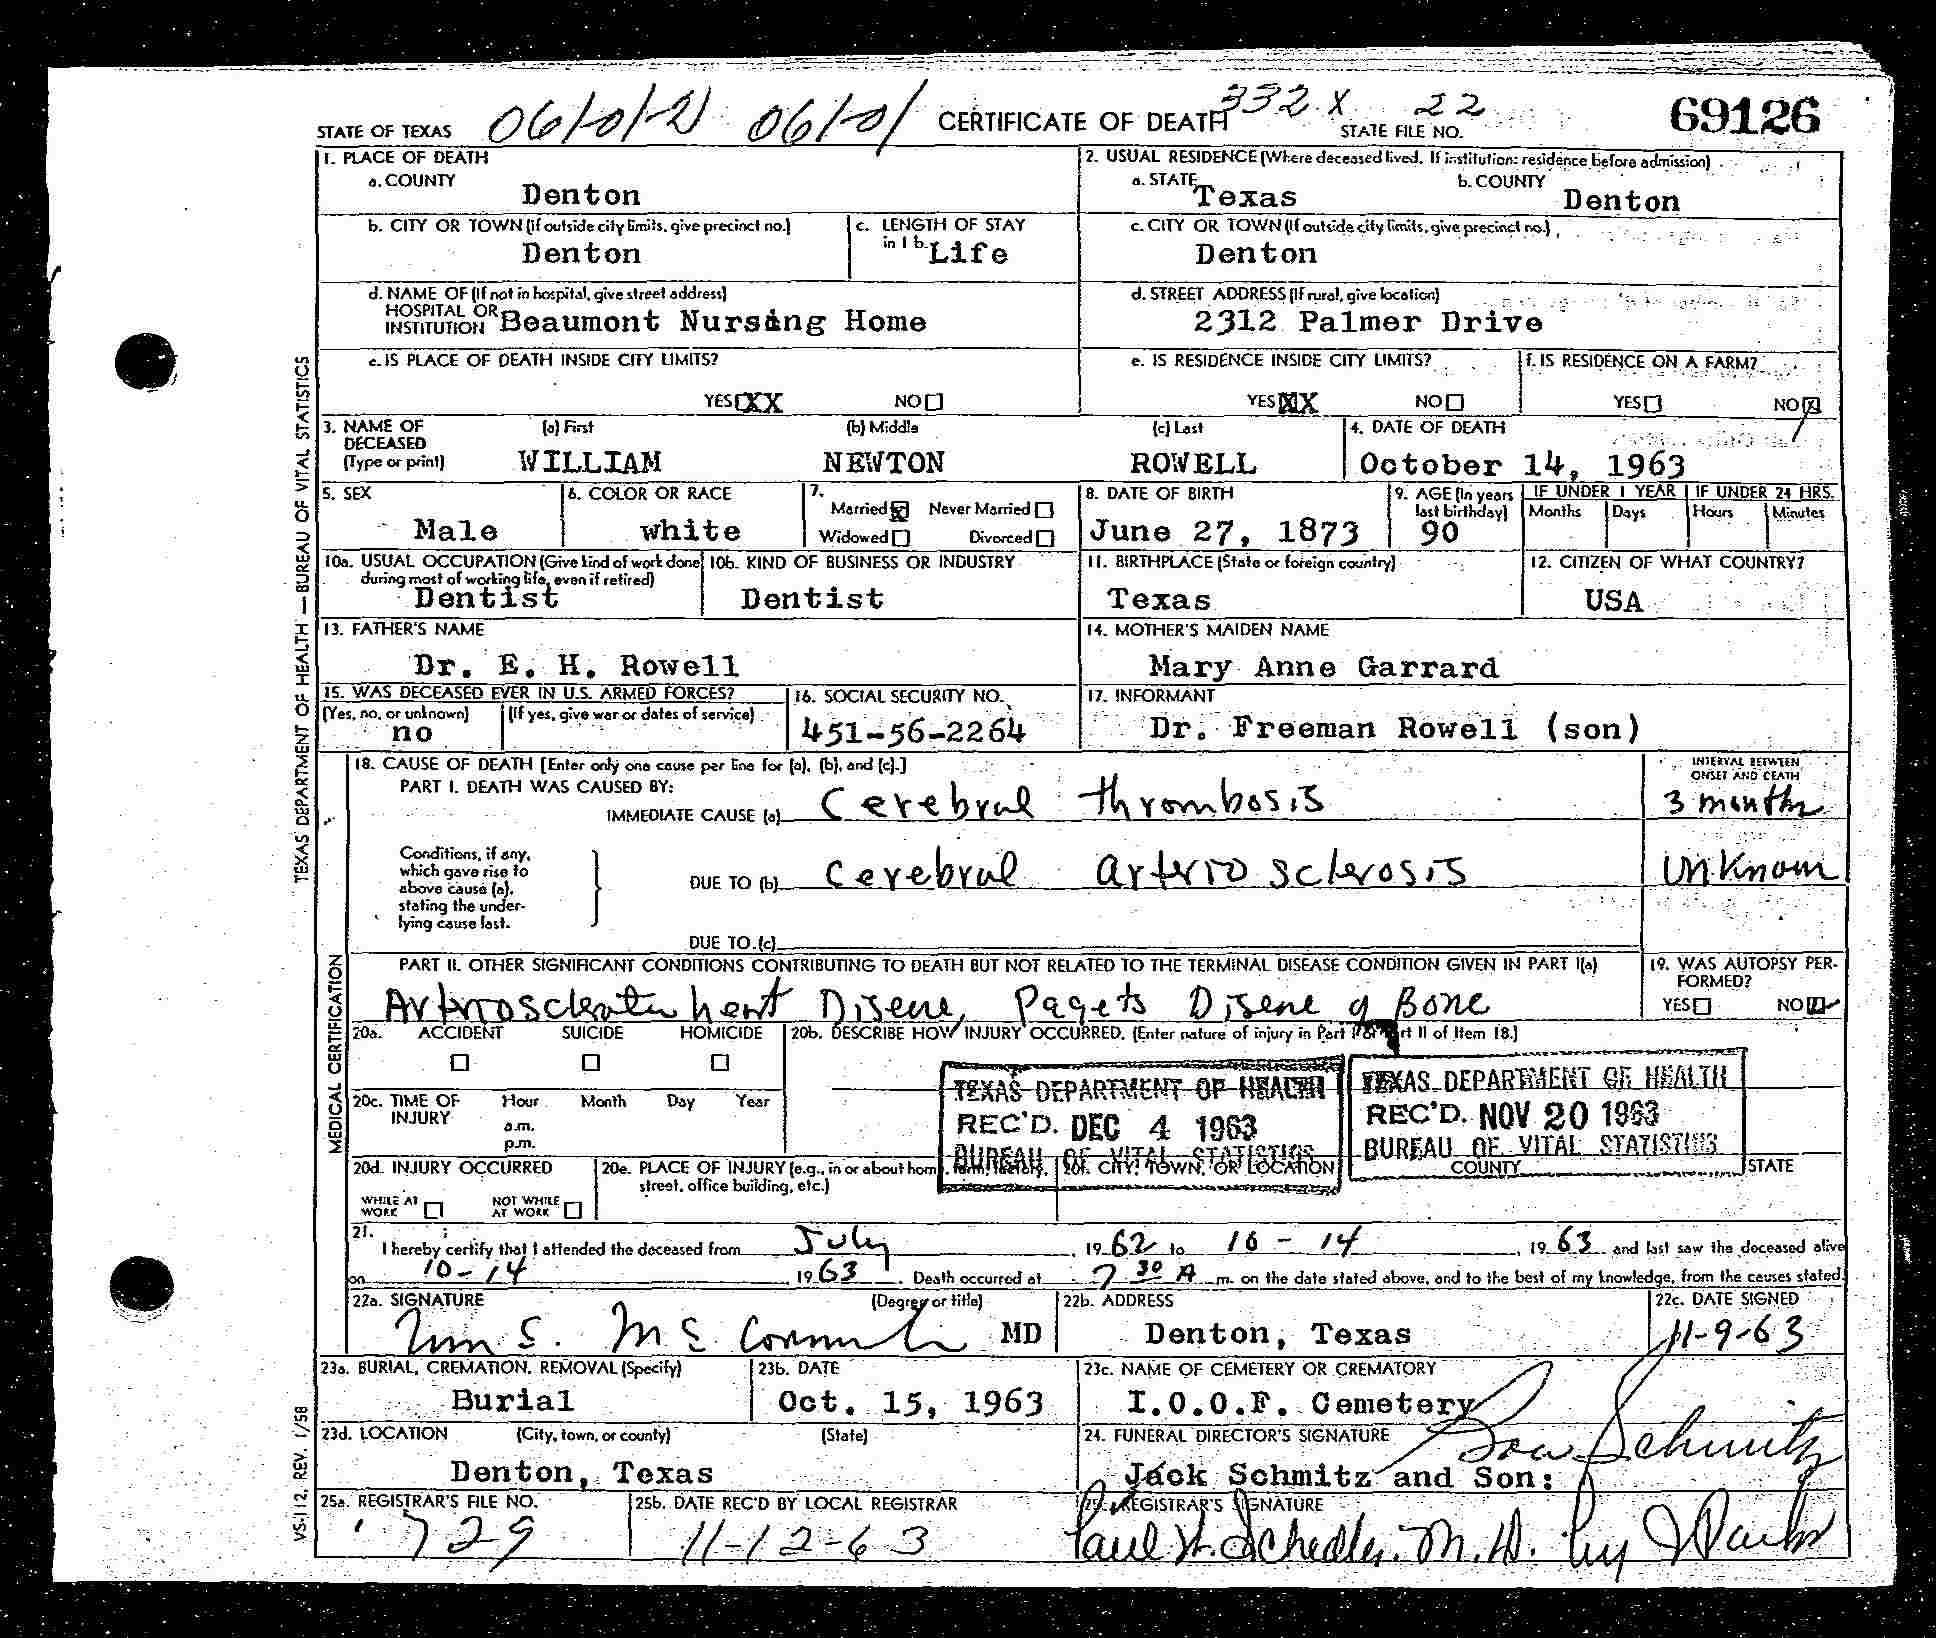 STATE OF TEXAS 061-01-2 061-01 CERTIFICATE OF DEATH 332 X 22 STATE FILE NO. 69126
1. PLACE OF DEATH
a. COUNTY
Denton
2. USUAL RESIDENCE (Where deceased lived. If institution: residence before admission)
a. STATE Texas b. COUNTY Denton
b. CITY OR TOWN (If outside city limits, give precinct no.)
Denton
c. LENGTH OF STAY
in 1 b. Life
c. CITY OR TOWN (If outside city limits, give precinct no.)
Denton
d. NAME OF (If not in hospital, give street address)
HOSPITAL OR
INSTITUTION Beaumont Nursing Home
d. STREET ADDRESS (If rural, give location)
2312 Palmer Drive
e. IS PLACE OF DEATH INSIDE CITY LIMITS?
YES XX NO
e. IS RESIDENCE INSIDE CITY LIMITS?
YES XX NO
f. IS RESIDENCE ON A FARM?
YES NO X
3. NAME OF DECEASED (Type or print)
(a) First (b) Middle (c) Last
WILLIAM NEWTON ROWELL
4. DATE OF DEATH
October 14, 1963
5. SEX
Male
6. COLOR OR RACE
white
7.
Married X Never Married
Widowed Divorced
8. DATE OF BIRTH
June 27, 1873
9. AGE (In years last birthday)
90
IF UNDER 1 YEAR
Months Days
IF UNDER 24 HRS.
Hours Minutes
10a. USUAL OCCUPATION (Give kind of work done during most of working life, even if retired)
Dentist
10b. KIND OF BUSINESS OR INDUSTRY
Dentist
11. BIRTHPLACE (State or foreign country)
Texas
12. CITIZEN OF WHAT COUNTRY?
USA
13. FATHER'S NAME
Dr. E. H. Rowell
14. MOTHER'S MAIDEN NAME
Mary Anne Garrard
15. WAS DECEASED EVER IN U.S. ARMED FORCES?
(Yes, no, or unknown) (If yes, give war or dates of service)
no
16. SOCIAL SECURITY NO.
451-56-2264
17. INFORMANT
Dr. Freeman Rowell (son)
18. CAUSE OF DEATH [Enter only one cause per line for (a), (b), and (c).]
INTERVAL BETWEEN ONSET AND DEATH
PART I. DEATH WAS CAUSED BY:
IMMEDIATE CAUSE (a) Cerebral thrombosis 3 months
Conditions, if any, which gave rise to above cause (a), stating the underlying cause last.
DUE TO (b) Cerebral arteriosclerosis unknown
DUE TO (c)
PART II. OTHER SIGNIFICANT CONDITIONS CONTRIBUTING TO DEATH BUT NOT RELATED TO THE TERMINAL DISEASE CONDITION GIVEN IN PART I(a)
Arteriosclerotic heart Disease, Pagets Disease of Bone
19. WAS AUTOPSY PERFORMED?
YES NO
20a. ACCIDENT SUICIDE HOMICIDE
20b. DESCRIBE HOW INJURY OCCURRED. (Enter nature of injury in Part I or Part II of Item 18.)
TEXAS DEPARTMENT OF HEALTH
REC'D. DEC 4 1963
BUREAU OF VITAL STATISTICS
TEXAS DEPARTMENT OF HEALTH
REC'D. NOV 20 1963
BUREAU OF VITAL STATISTICS
20c. TIME OF INJURY
Hour Month Day Year
a.m.
p.m.
20d. INJURY OCCURRED
WHILE AT WORK NOT WHILE AT WORK
20e. PLACE OF INJURY (e.g., in or about home, farm, factory, street, office building, etc.)
20f. CITY, TOWN, OR LOCATION COUNTY STATE
21.
I hereby certify that I attended the deceased from July, 1962 to 10-14, 1963 and last saw the deceased alive
on 10-14 1963. Death occurred at 7 30 A m. on the date stated above, and to the best of my knowledge, from the causes stated.
22a. SIGNATURE (Degree or title)
Wm S. McCormick MD
22b. ADDRESS
Denton, Texas
22c. DATE SIGNED
11-9-63
23a. BURIAL, CREMATION, REMOVAL (Specify)
Burial
23b. DATE
Oct. 15, 1963
23c. NAME OF CEMETERY OR CREMATORY
I.O.O.F. Cemetery
23d. LOCATION (City, town, or county) (State)
Denton, Texas
24. FUNERAL DIRECTOR'S SIGNATURE
Schmitz
Jack Schmitz and Son:
25a. REGISTRAR'S FILE NO.
729
25b. DATE REC'D BY LOCAL REGISTRAR
11-12-63
REGISTRAR'S SIGNATURE
Paul H. Schedler, M.D. by
TEXAS DEPARTMENT OF HEALTH — BUREAU OF VITAL STATISTICS
MEDICAL CERTIFICATION
VS-112, REV. 1/58